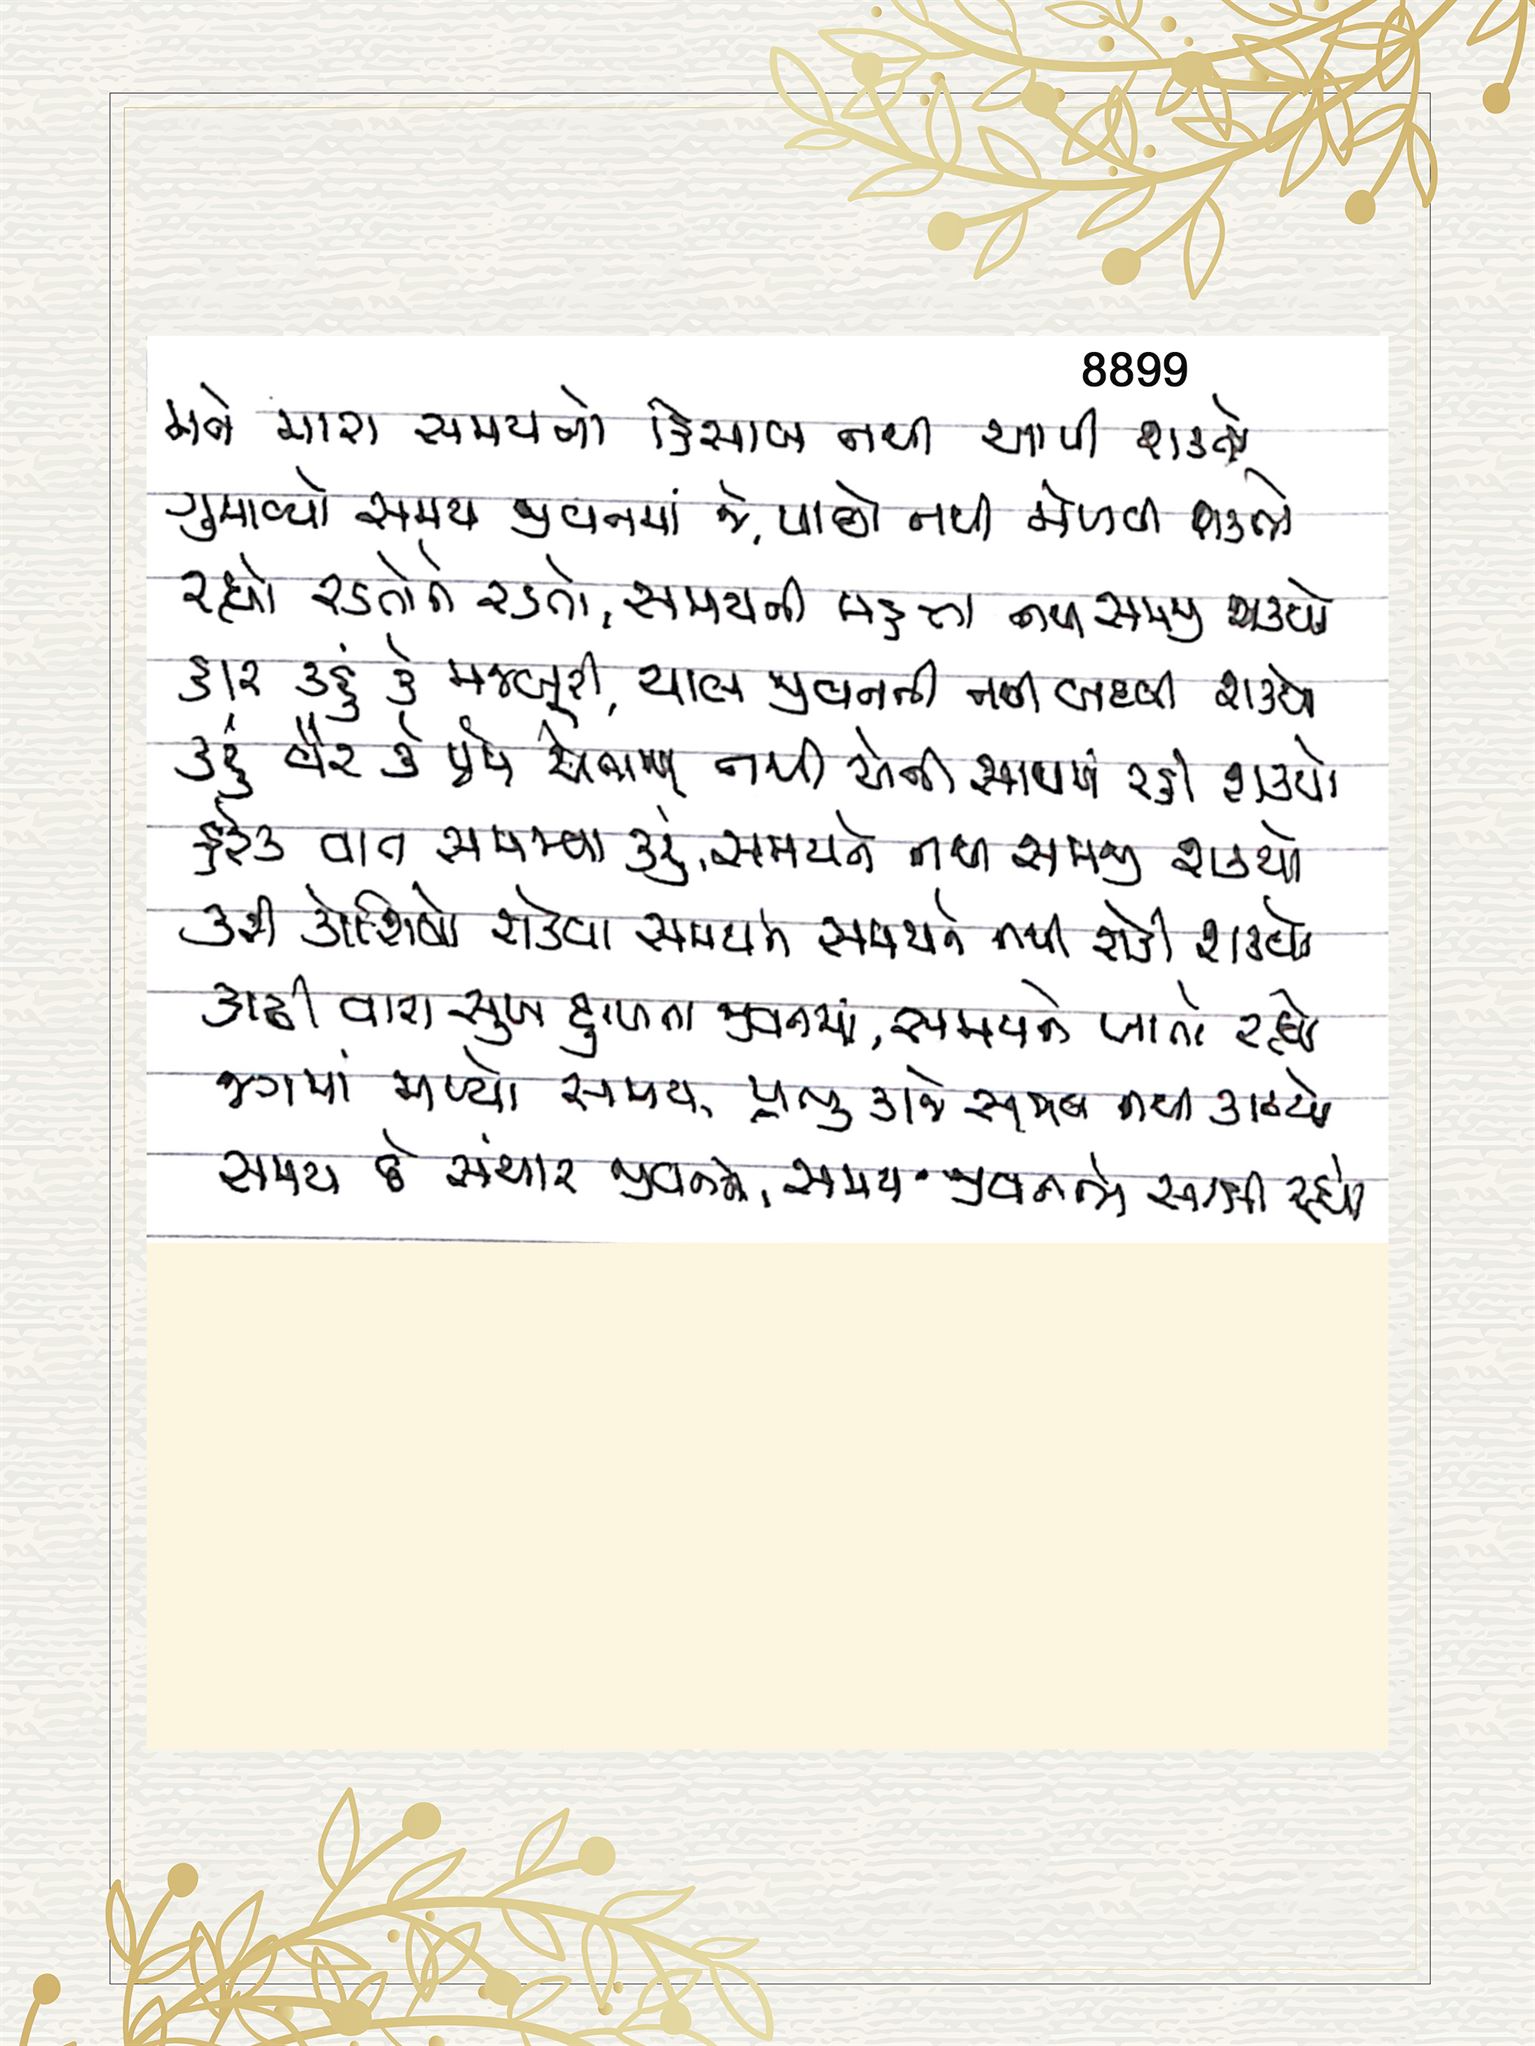 8899
મને મારા સમયનો હિસાબ નથી આપી શક્તો
ગુમાવ્યો સમય જીવનમાં જે, પાછો નથી મેળવી શક્તો
રહ્યો રડતોને રડતો, સમયની મહત્તા નથી સમજી શક્યો
હાર કહું કે મજબૂરી, ચાલ જીવનની નથી બદલી શક્યો
કહું વૈર કે પ્રેમ નથી એની સાથમાં રહી શક્યો
હરેક વાત સમજવા કહું, સમયને નથી સમજી શક્યો
કરી કોશિષો રોકવા સમયને સમયને નથી રોકી શક્યો
કાઢી વારા સુખ દુઃખના જીવનમાં, સમયને ખાતો રહ્યો
જગમાં મળ્યો સમય, પ્રભુ કાજે સમય નથી કાઢ્યો
સમય છે સંથાર જીવનને, સમય જીવનને રહ્યો